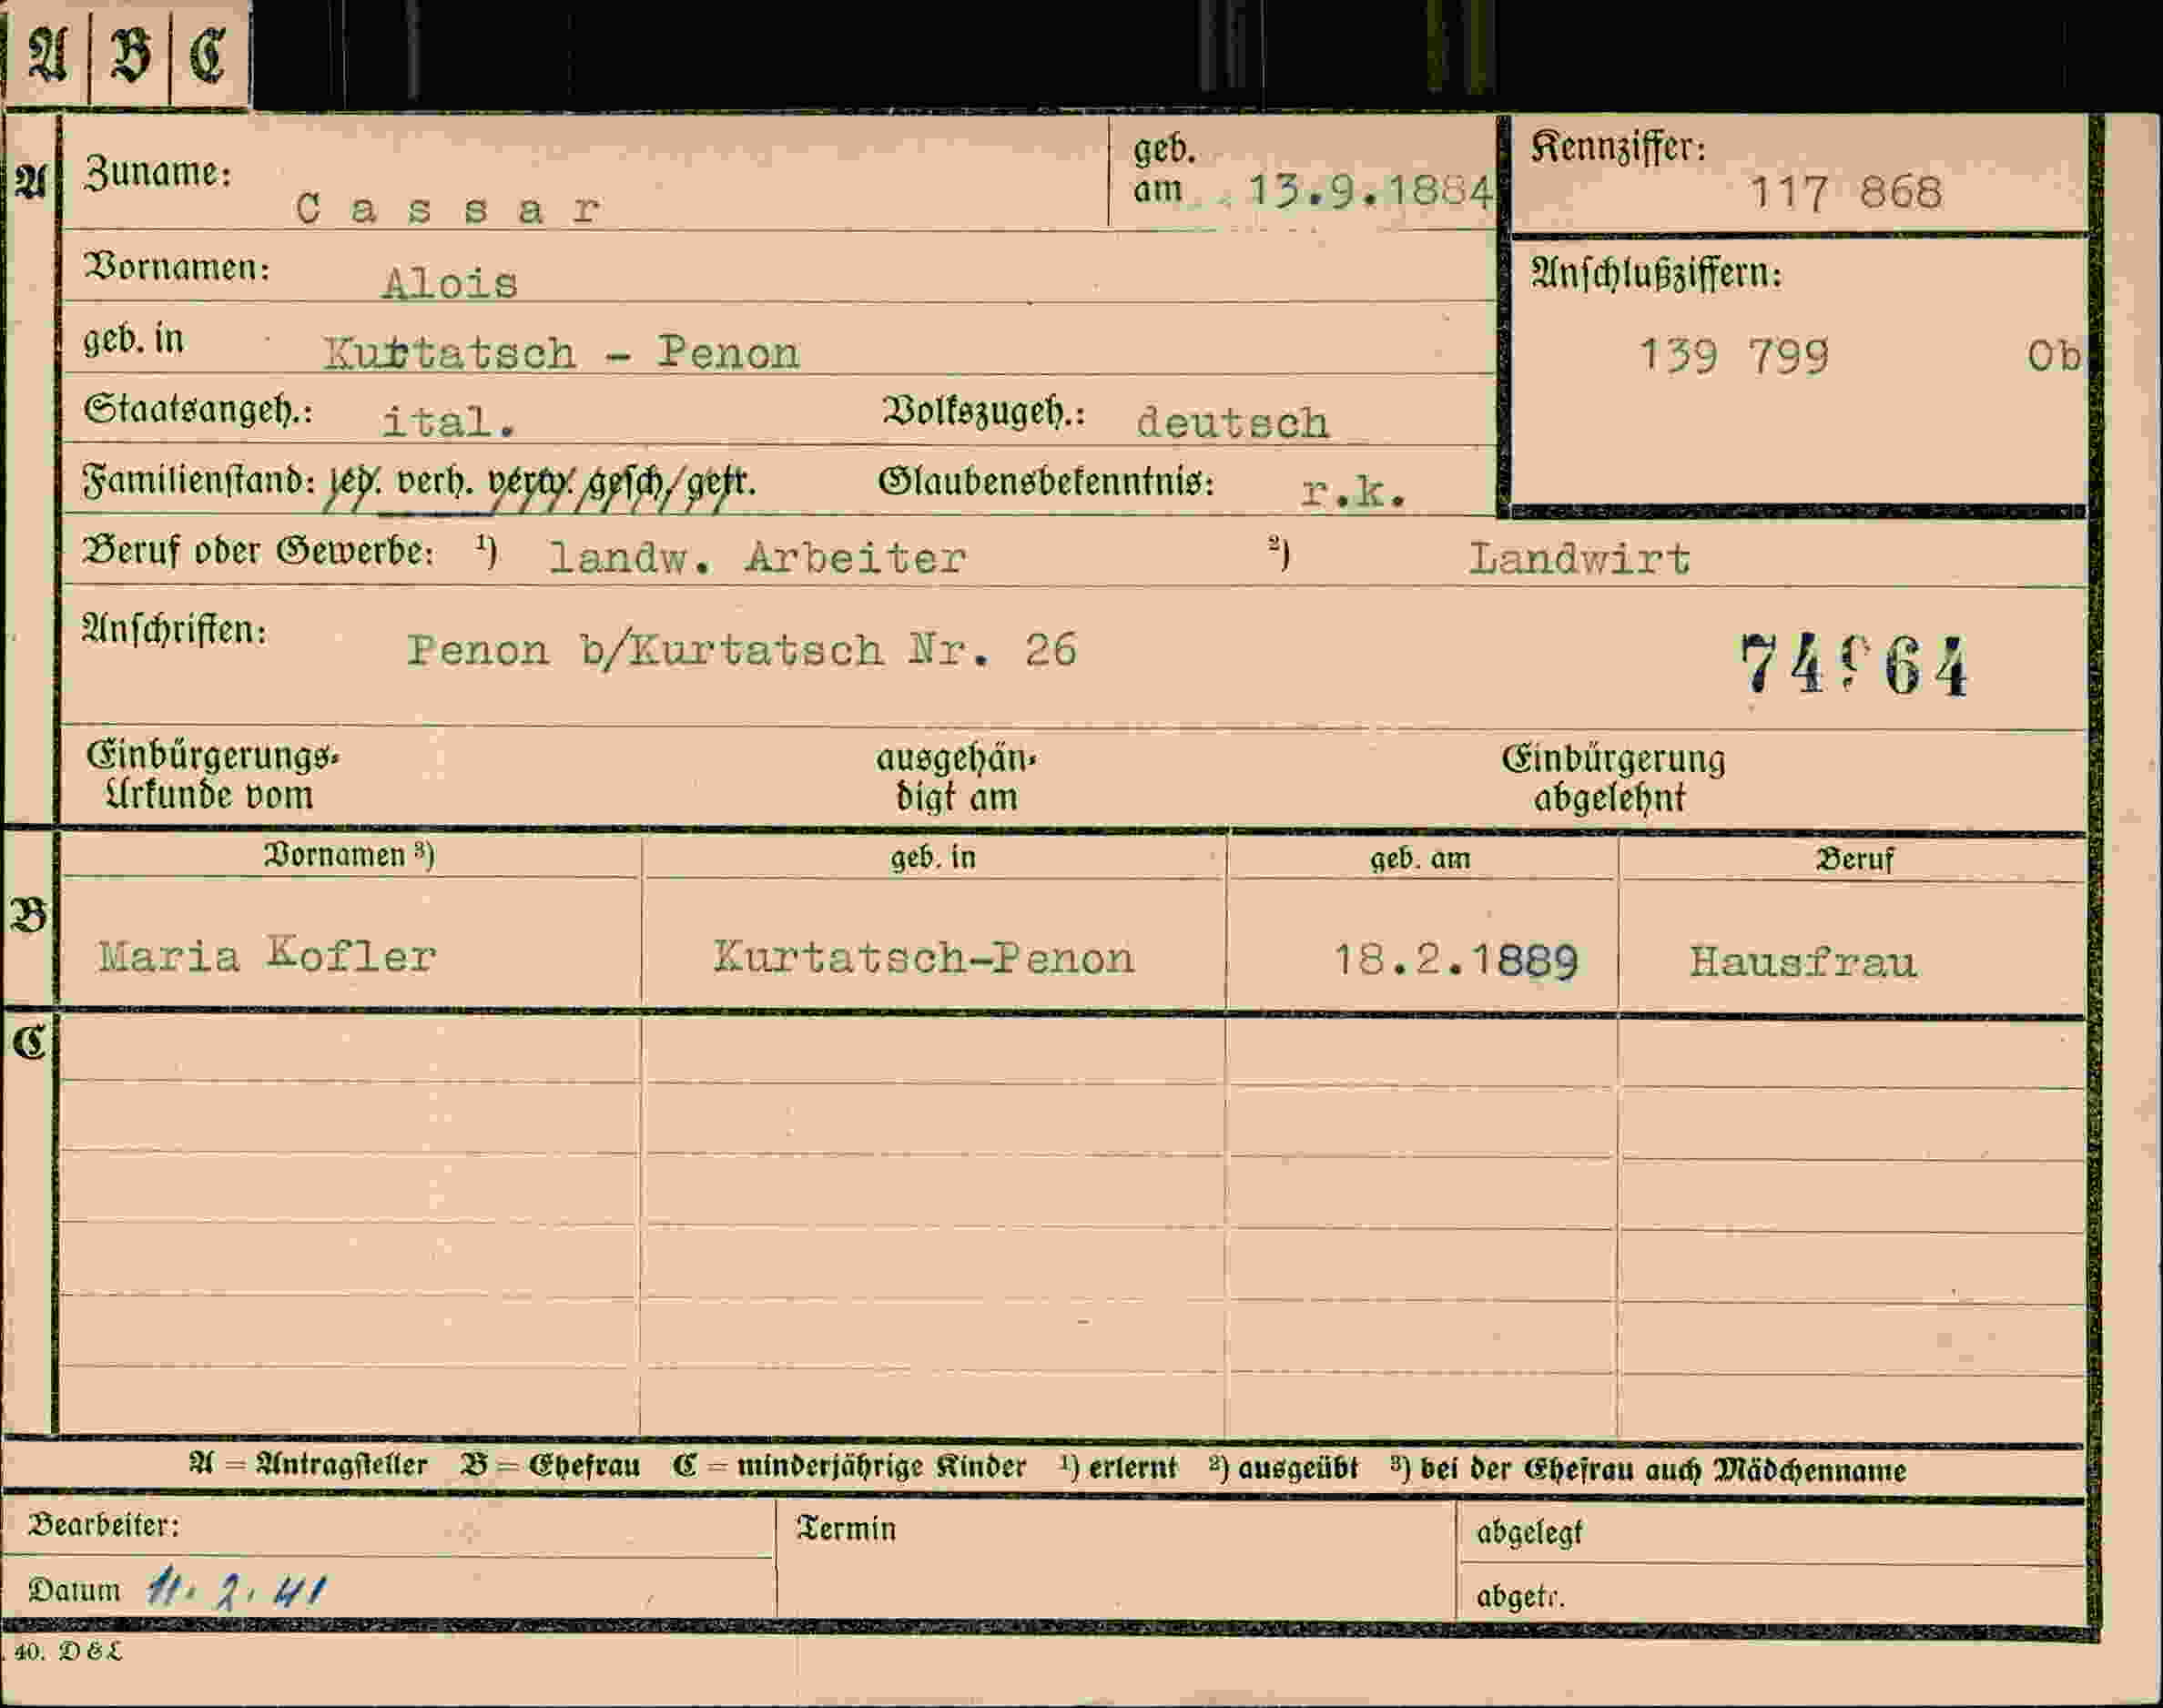 A B C
A Zuname: Cassar geb. am 13.9.1884 Kennziffer: 117 868
Vornamen: Alois Anschlußziffern:
geb. in Kurtatsch - Penon 139 799 Ob
Staatsangeh.: ital. Volkszugeh.: deutsch
Familienstand: led. verh. verw. gesch. getr. Glaubensbekenntnis: r.k.
Beruf oder Gewerbe: ¹) landw. Arbeiter ²) Landwirt
Anschriften: Penon b/Kurtatsch Nr. 26
Einbürgerungs-Urkunde vom ausgehändigt am Einbürgerung abgelehnt
Vornamen ³) geb. in geb. am Beruf
B Maria Kofler Kurtatsch-Penon 18.2.1889 Hausfrau
C
A = Antragsteller B = Ehefrau C = minderjährige Kinder ¹) erlernt ²) ausgeübt ³) bei der Ehefrau auch Mädchenname
Bearbeiter: Termin abgelegt
Datum 11. 2. 41 abgetr.
40. D & L